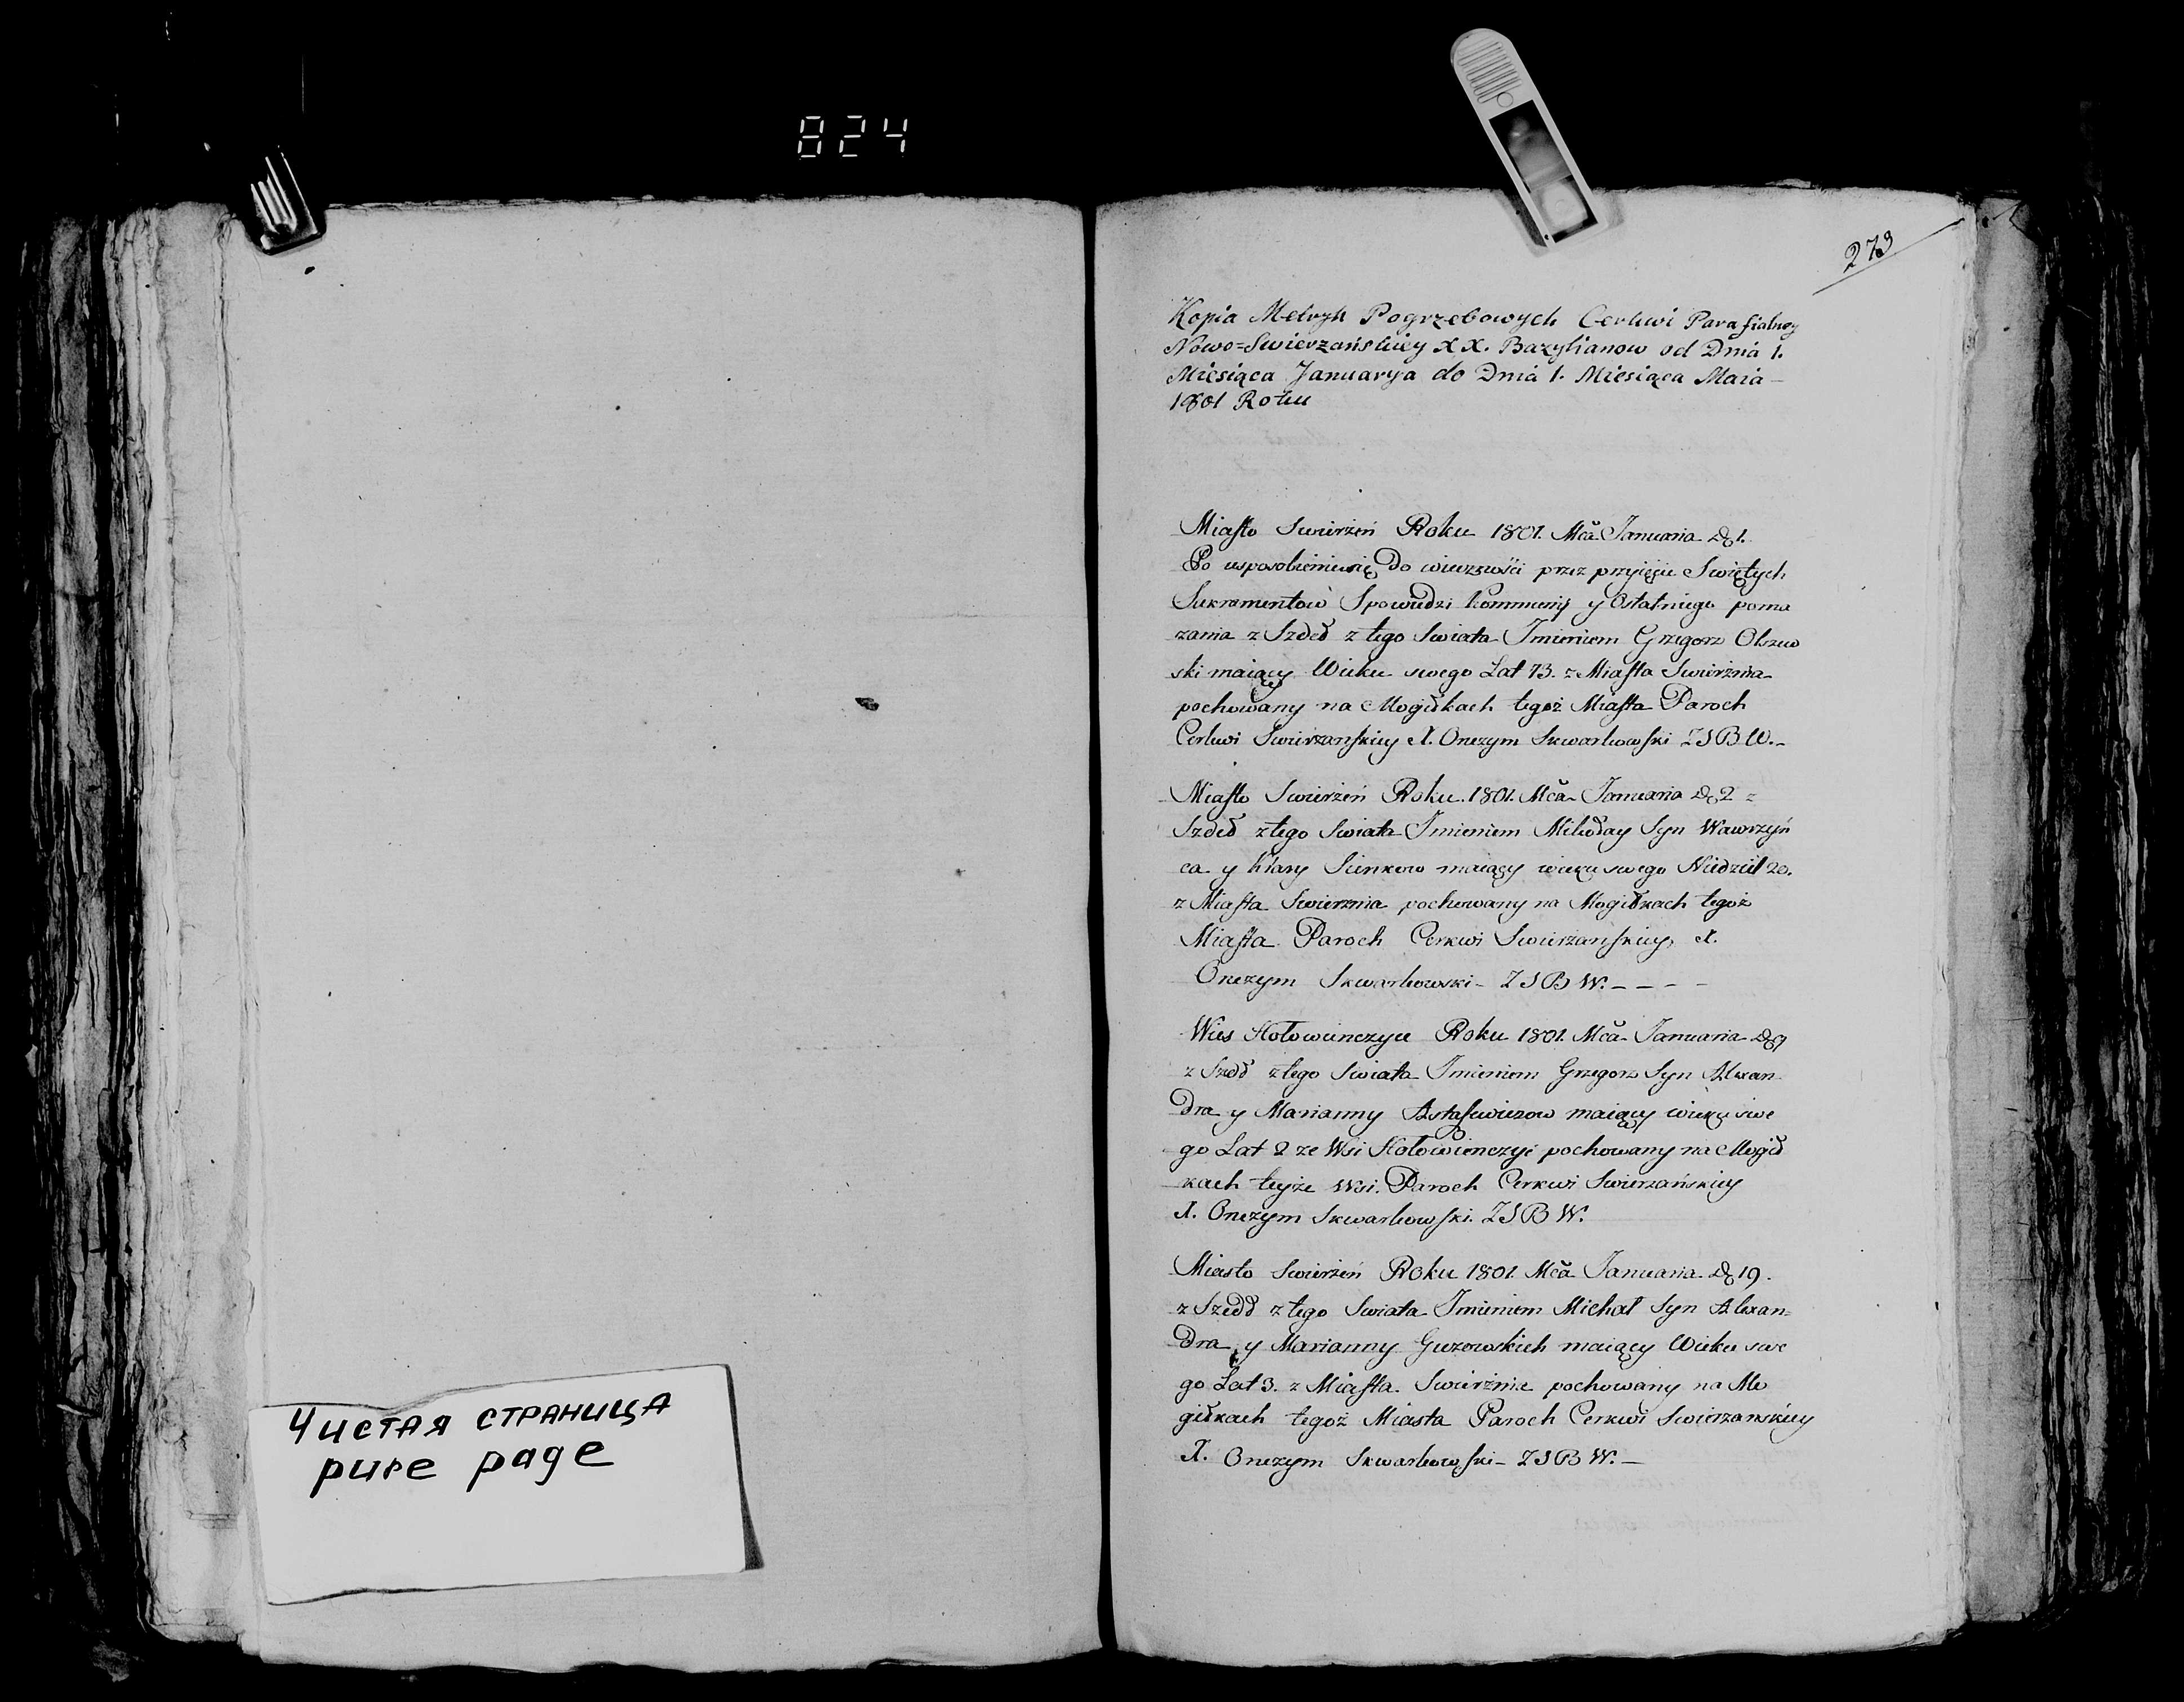 824
Чистая страница
pure page
273
Kopia Metryk Pogrzebowych Cerkwi Parafialney
Nowo=Swierzańskiey XX. Bazylianow od Dnia 1.
Miesiąca Januarya do Dnia 1. Miesiąca Maia
1801 Roku
Miasto Swierżeń Roku 1801. Mca Januaria D 1.
Po usposobieniu się do wieczności przez przyięcie Swiętych
Sakramentow Spowiedzi Kommunij y Ostatniego poma
zania z Szedł z tego Swiata Imieniem Grzegorz Olszew
ski maiący Wieku swego Lat 73. z Miasta Swierżnia
pochowany na Mogiłkach tegoż Miasta Paroch
Cerkwi Swierzanskiey X. Onezym Skwarkowski ZSBW.
Miasto Swierżeń Roku. 1801. Mca Januaria D 2 z
Szedł z tego Swiata Imieniem Mikołay Syn Wawrzyń
ca y Klary Sienkow maiący wieku swego Niedziel 20.
z Miasta Swierznia pochowany na Mogiłkach tegoż
Miasta Paroch Cerkwi Swierzanskiey X.
Onezym Skwarkowski - ZSBW. - - - -
Wies Hołowienczyce Roku 1801. Mca Januaria
z Szedł z tego Swiata Imieniem Grzegorz Syn Alexan
dra y Marianny maiący wieku swe
go Lat 2 ze Wsi Hołowienczyc pochowany na Mogił
kach teyże Wsi. Paroch Cerkwi Swierzańskiey
X. Onezym Skwarkowski. ZSBW.
Miasto Swierżeń Roku 1801. Mca Januaria D 19.
z Szedł z tego Swiata Imieniem Michał Syn Alexan=
dra y Marianny Guzowskich maiący Wieku swe
go Lat 3. z Miasta Swierżnia pochowany na Mo
giłkach tegoż Miasta Paroch Cerkwi Swierzanskiey
X. Onezym Skwarkowski - ZSBW. -